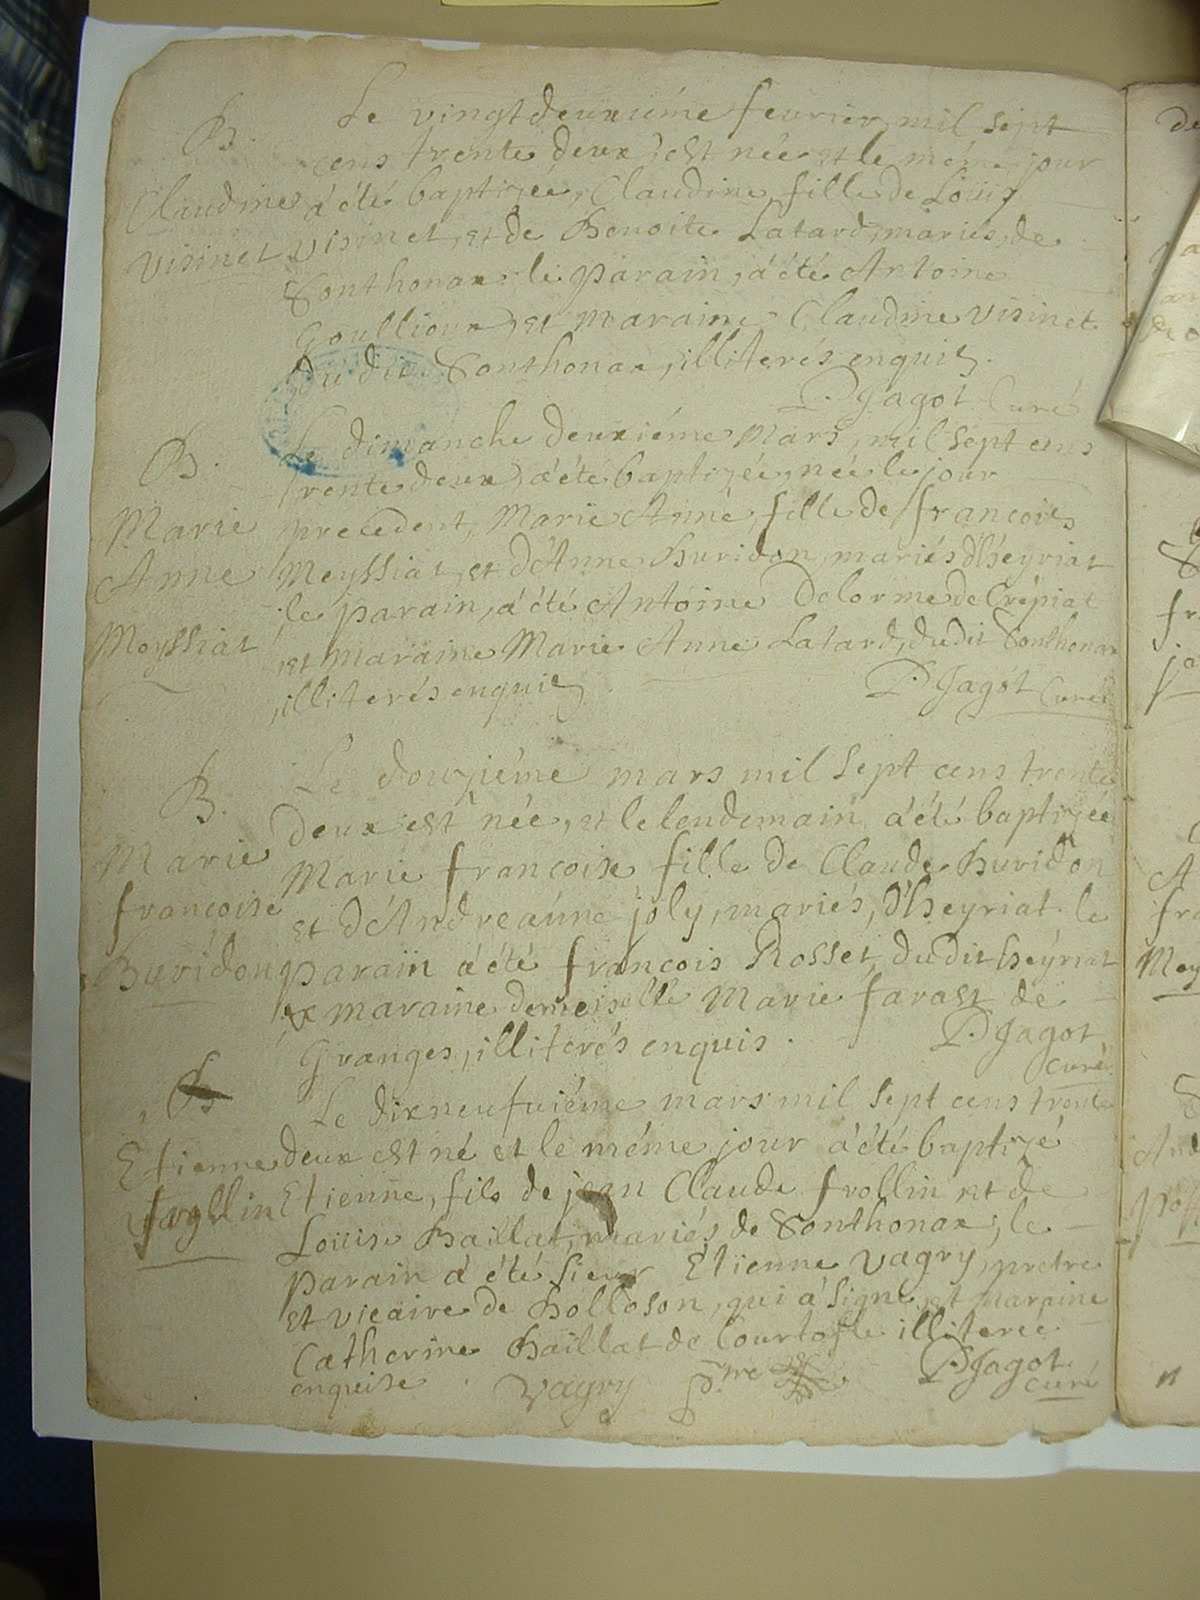 B.
Claudine
Visinet
Le vingtdeuxiéme feurier, mil sept
cens trente deux, est née et le méme jour
à été baptizée, Claudine, fille de Loüis
Visinet, et de Benoite Latard, mariés, de
Sonthonax, le parain, à été Antoine
Goullioux, et maraine Claudine Visinet
du dit Sonthonax, illiterés enquis.
P. Jagot Curé
B.
Marie
Anne
Meyssiat
Le dimanche deuxiéme Mars, mil sept cens
trente deux, à été baptizée, née le jour
precedent, Marie Anne, fille de francois
Meyssiat, et d'Anne Buridon, mariés d'heyriat
le parain, à été Antoine Delorme de Crépiat
et maraine Marie Anne Latard, dudit Sonthonax
illiterés enquis
P. Jagot Curé
B.
Marie
francoise
Buridon
Le douziéme mars mil sept cens trente
deux est née, et le lendemain à été baptizée
Marie francoise fille de Claude Buridon
et d'Andreaune joly, mariés, d'heyriat. le
parain à été francois Rosset, dudit heyriat
et maraine demeiselle Marie farast de
Granges, illiterés enquis.
P. Jagot
curé
B
Etienne
frollin
Le dixneufuiéme mars mil sept cens trente
deux est né et le méme jour à été baptizé
Etienne, fils de jean Claude frollin et de
Loüise Baillat, mariés de Sonthonax, le
parain à été sieur Etienne Vagry, pretre
et vicaire de Bolloson, qui à signé, et maraine
Catherine Baillat de Courtofle illiteree
enquise.
Vagry ptre
P. Jagot
curé